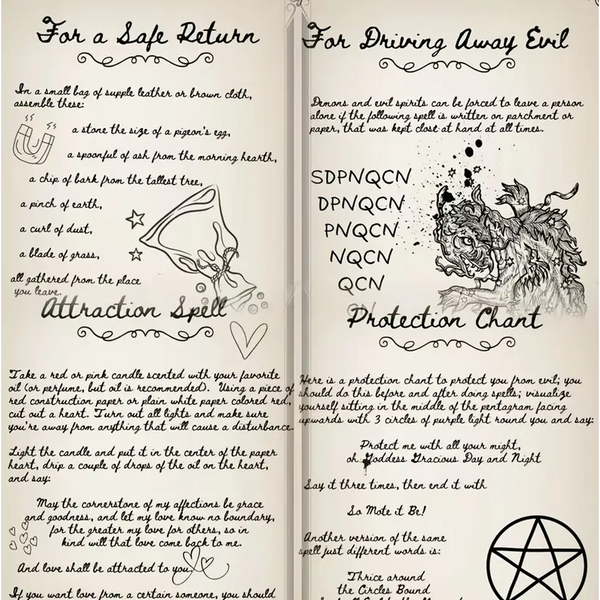 For a Safe Return
In a small bag of supple leather or brown cloth,
assemble these:
a stone the size of a pigeon's egg,
a spoonful of ash from the morning hearth,
a chip of bark from the tallest tree,
a pinch of earth,
a curl of dust,
a blade of grass,
all gathered from the place
you leave.
Attraction Spell
Take a red or pink candle scented with your favorite
oil (or perfume, but oil is recommended). Using a piece of
red construction paper or plain white paper colored red,
cut out a heart. Turn out all lights and make sure
you're away from anything that will cause a disturbance.
Light the candle and put it in the center of the paper
heart, drip a couple of drops of the oil on the heart,
and say:
May the cornerstone of my affections be grace
and goodness, and let my love know no boundary,
for the greater my love for others, so in
kind will that love come back to me.
And love shall be attracted to you.
If you want love from a certain someone, you should
For Driving Away Evil
Demons and evil spirits can be forced to leave a person
alone if the following spell is written on parchment or
paper, that was kept close at hand at all times.
SDPNQCN
DPNQCN
PNQCN
NQCN
QCN
Protection Chant
Here is a protection chant to protect you from evil; you
should do this before and after doing spells; visualize
yourself sitting in the middle of the pentagram facing
upwards with 3 circles of purple light round you and say:
Protect me with all your might,
oh Goddess Gracious Day and Night
Say it three times, then end it with
So Mote it Be!
Another version of the same
spell just different words is:
Thrice around
the Circles Bound